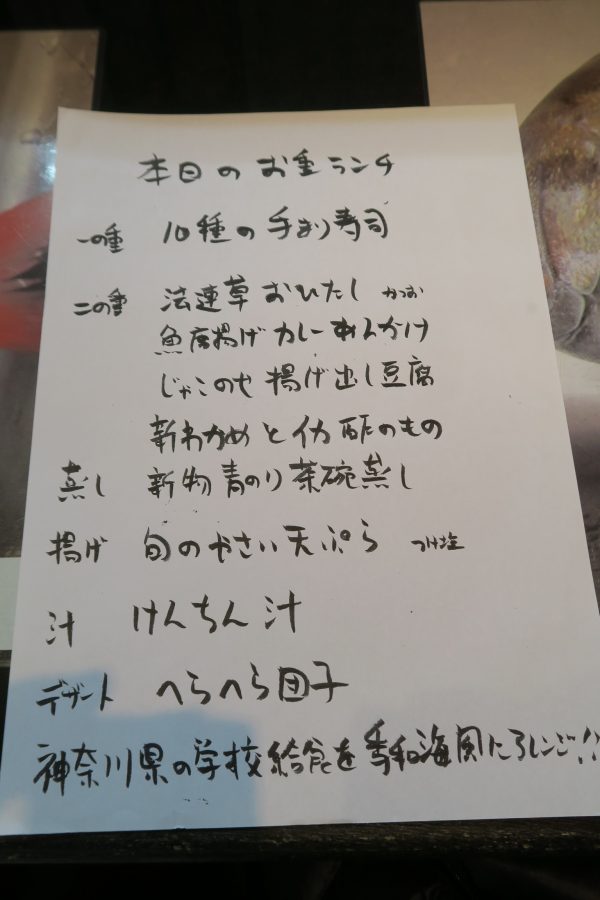 本日のお重ランチ
一の重 10種の手まり寿司
二の重 法連草おひたし かつお
魚唐揚げカレーあんかけ
じゃこのせ揚げ出し豆腐
新わかめとイカ酢のもの
蒸し 新物青のり茶碗蒸し
揚げ 旬のやさい天ぷら つけ塩
汁 けんちん汁
デザート へらへら団子
神奈川県の学校給食を季和海風にアレンジ!!